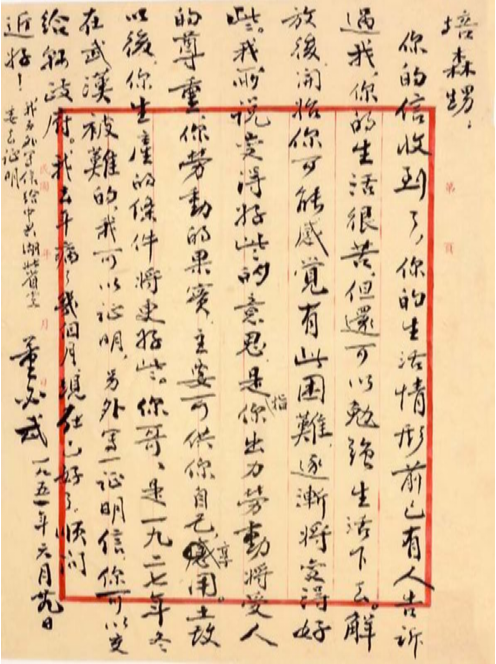 培森甥：
你的信收到了，你的生活情形前已有人告訴
過我，你的生活很苦，但還可以勉強生活下去。解
放後，開始你可能感覺有些困難，逐漸將變得好
些。我所说變得好些的意思，是指你出力勞動將受人
的尊重，你勞動的果實，主要可供你自己享用。土改
以後，你生產的條件將更好些。你哥哥是一九二七年冬
在武漢被難的，我可以证明，另外写一证明信，你可以交
給鄉政府。我去年病了幾個月，現在已好了，順问
近好！
董必武 一九五一年六月 日
我另外写信给中共湖北省
委去证明
第 頁
年 月 日